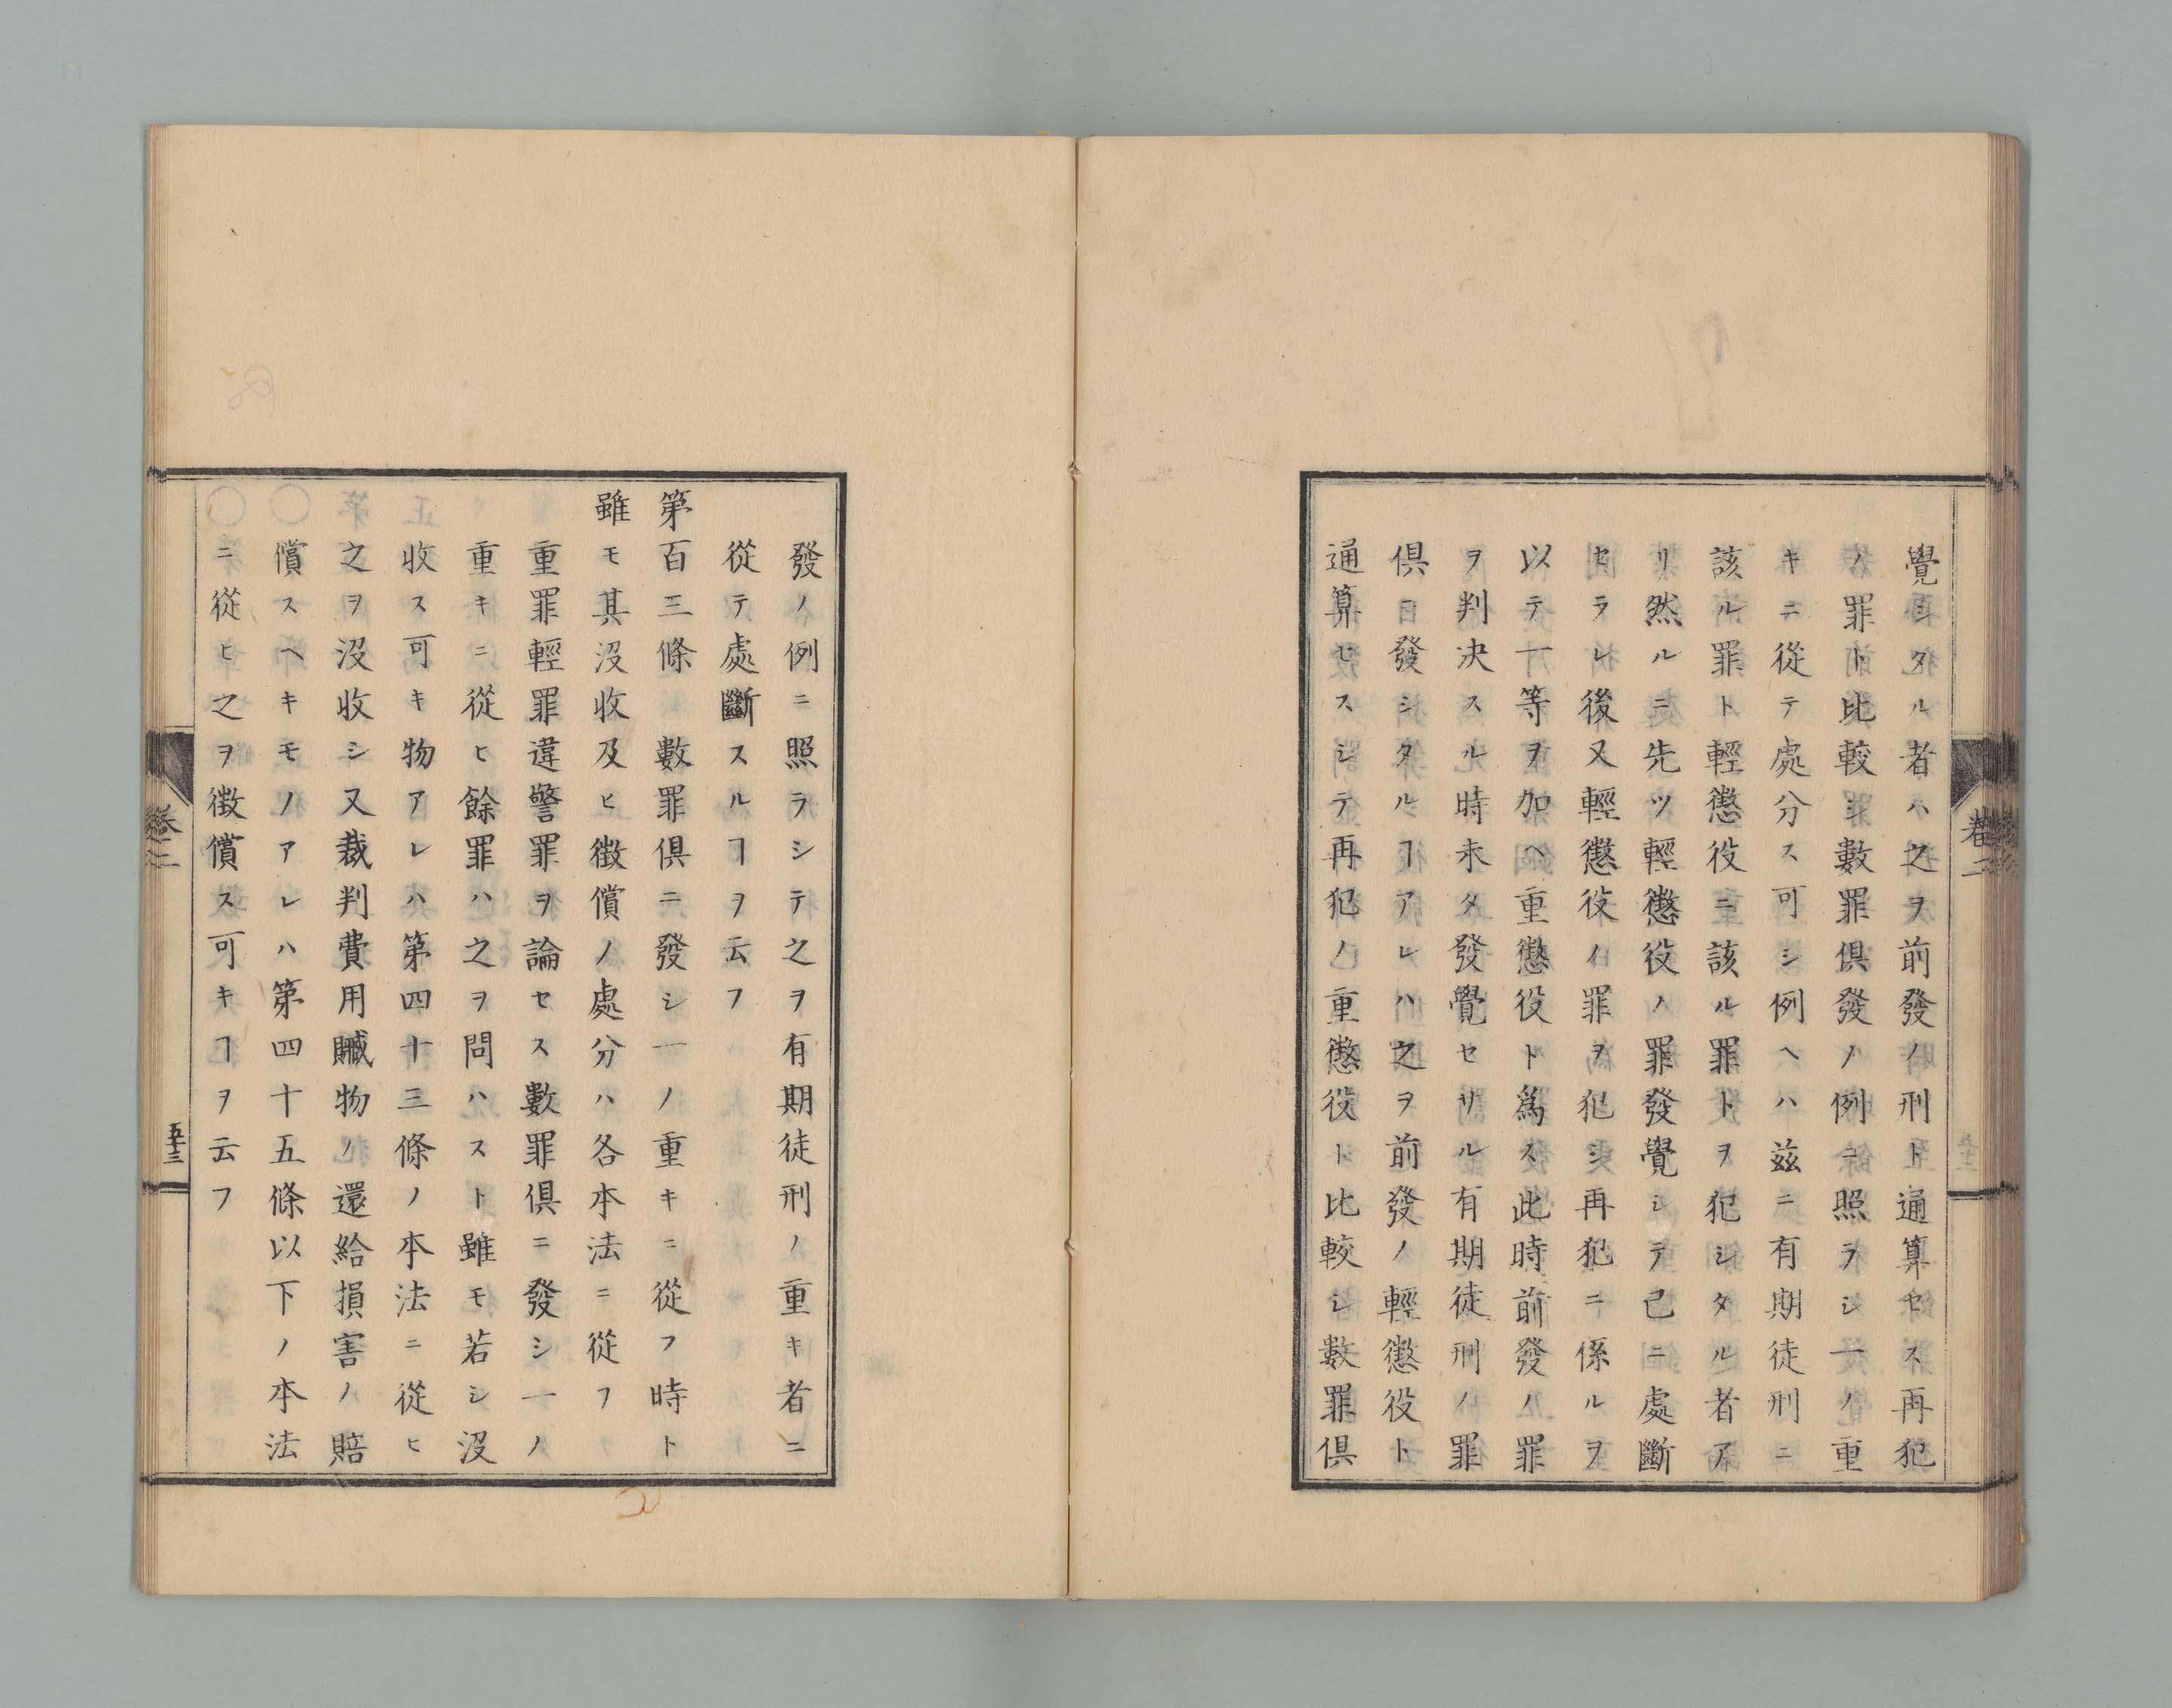 覺シタル者ハ之ヲ前發ノ刑ト通算セス再犯
ノ罪ト比較シ數罪俱發ノ例ニ照ラシ一ノ重
キニ從テ處分ス可シ例ヘハ玆ニ有期徒刑ニ
該ル罪ト輕懲役ニ該ル罪トヲ犯シタル者ア
リ然ルニ先ツ輕懲役ノ罪發覺シテ已ニ處斷
セラレ後又輕懲役ノ罪ヲ犯シ再犯ニ係ルヲ
以テ一等ヲ加ヘ重懲役ト爲ス此時前發ノ罪
ヲ判决スル時未タ發覺セサル有期徒刑ノ罪
俱ニ發シタルヿアレハ之ヲ前發ノ輕懲役ト
通算セスシテ再犯ノ重懲役ト比較シ數罪俱
卷二
發ノ例ニ照ラシテ之ヲ有期徒刑ノ重キ者ニ
從テ處斷スルヿヲ云フ
第百三條 數罪俱ニ發シ一ノ重キニ從フ時ト
雖モ其沒收及ヒ徵償ノ處分ハ各本法ニ從フ
重罪輕罪違警罪ヲ論セス數罪俱ニ發シ一ノ
重キニ從ヒ餘罪ハ之ヲ問ハスト雖モ若シ沒
收ス可キ物アレハ第四十三條ノ本法ニ從ヒ
之ヲ沒收シ又裁判費用贓物ノ還給損害ノ賠
償スヘキモノアレハ第四十五條以下ノ本法
ニ從ヒ之ヲ徵償ス可キヿヲ云フ
卷二
五十三